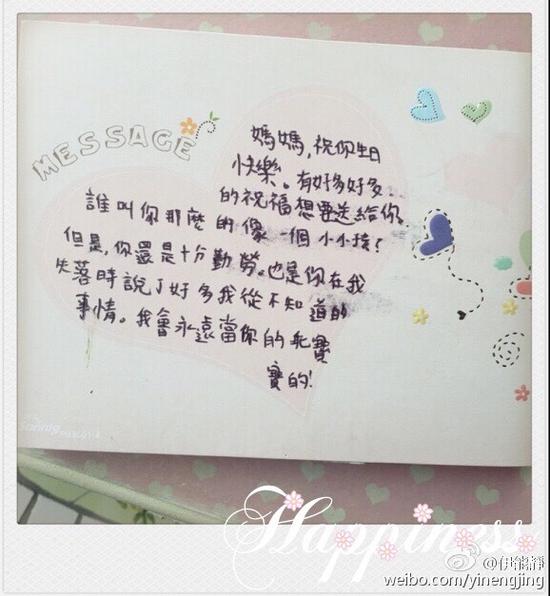 MESSAGE
媽媽,祝你生日
快樂。有好多好多
的祝福想要送給你。
誰叫你那麼的像一個小小孩?
但是,你還是十分勤勞。也是你在我
失落時說了好多我從不知道的
事情。我會永遠當你的乖寶
寶的!
Happiness
@伊能靜
weibo.com/yinengjing